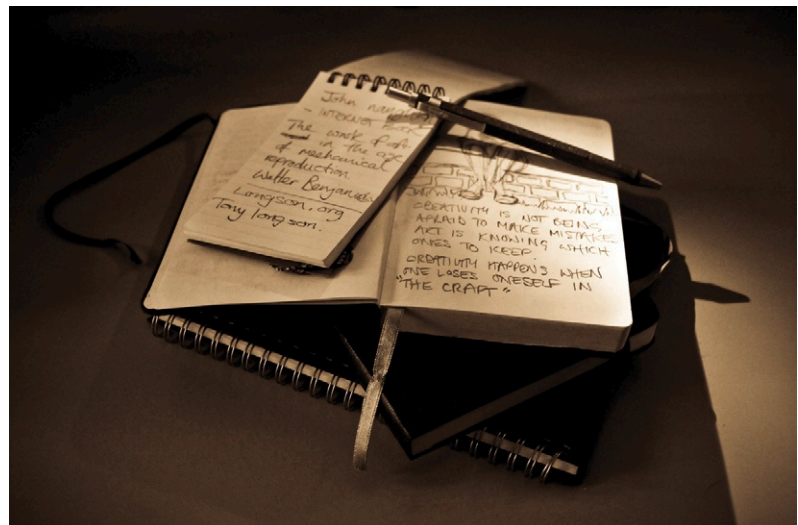 John
- INTERNET BOOK
The work of art
in the age
of mechanical
reproduction
Walter Benjamin
Longson.org
Tony Longson.
CREATIVITY IS NOT BEING
AFRAID TO MAKE MISTAKES
ART IS KNOWING WHICH
ONES TO KEEP.
CREATIVITY HAPPENS WHEN
ONE LOSES ONESELF IN
"THE CRAFT"